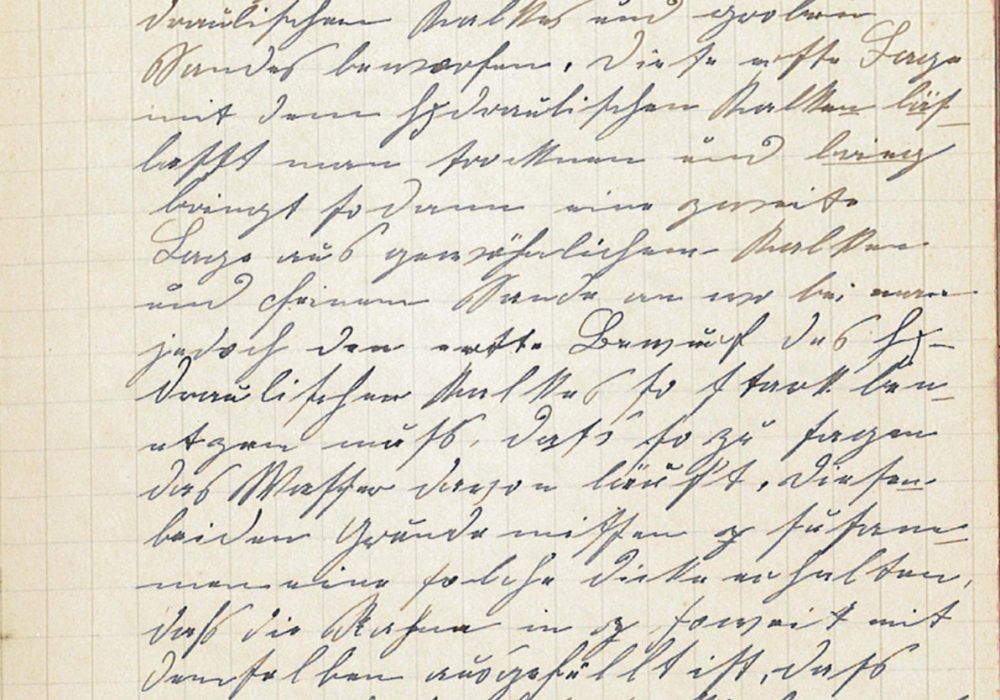 draulischen Kalkes und groben
Sandes beworfen. Diese erste Lage
mit dem hydraulischen Kalken läs-
lässt man trocknen und bring
bringt sodann eine zweite
Lage aus gewöhnlichem Kalken
und feinem Sande an wo bei man
jedoch den erste Bewurf des hy-
draulischen Kalkes so stark ben-
etzen muß, daß so zu sagen
das Wasser davon läuft. Diesen
beiden Gründe müssen z susam-
men eine solche Dicke erhalten,
daß die Rahme in z soweit mit
demselben ausgefüllt ist, dass